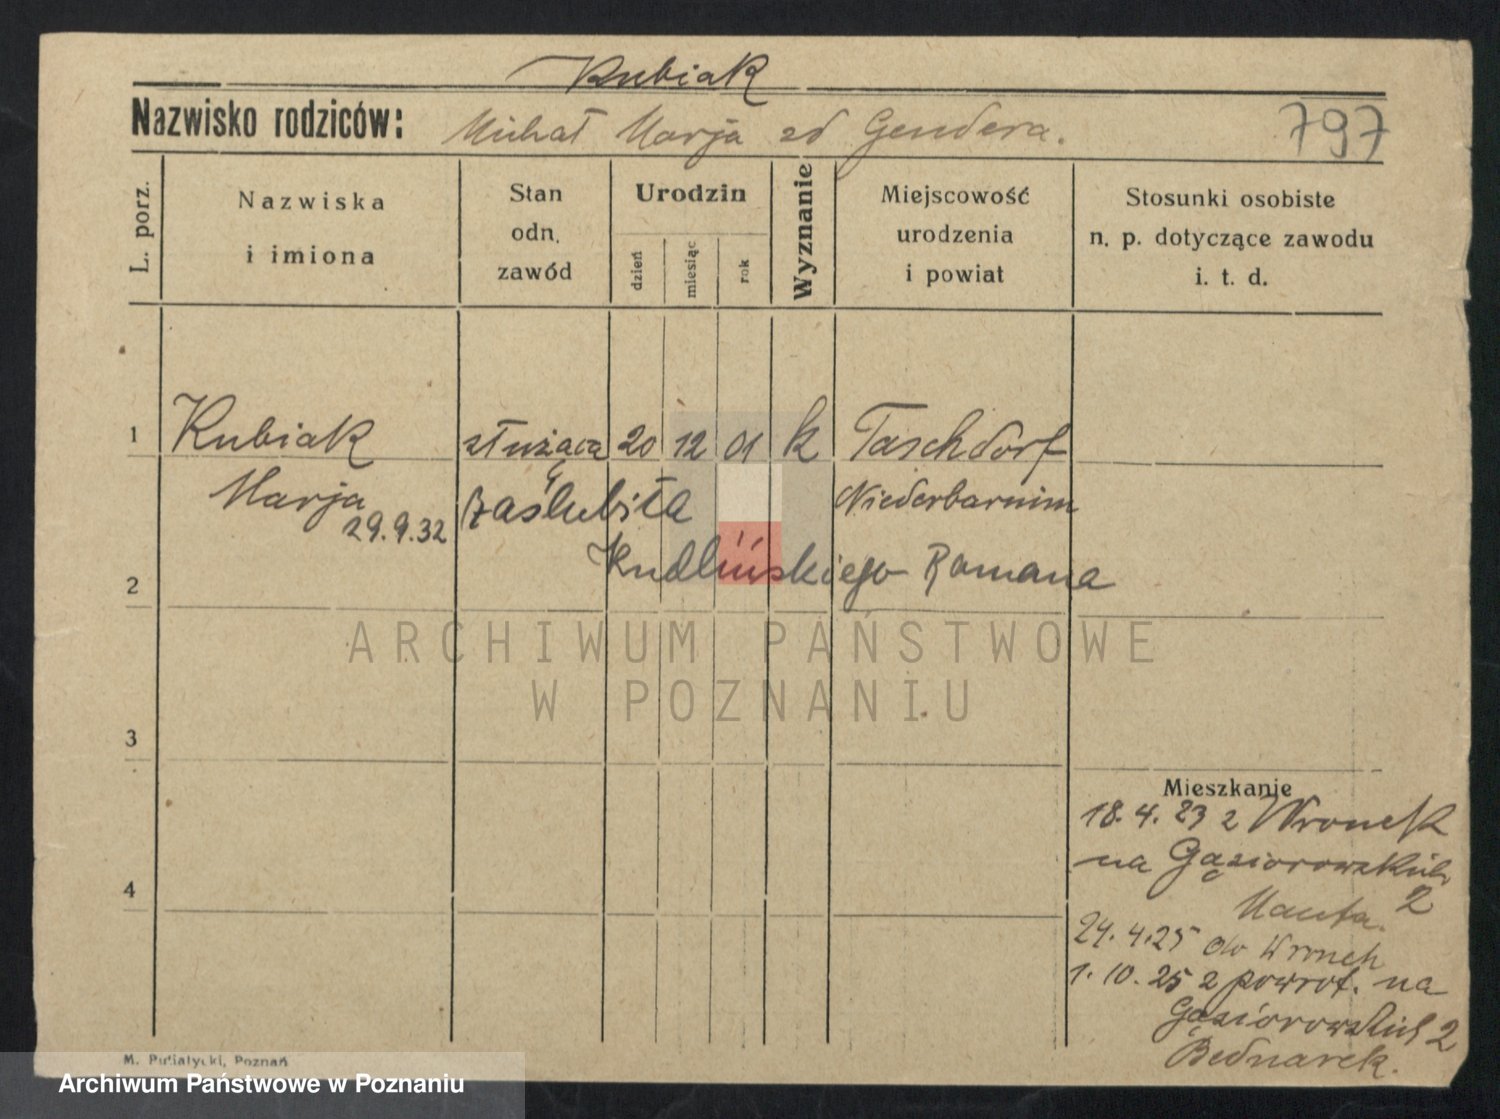 Kubiak
Nazwisko rodziców: Michał Marja zd Gendera. 797
L. porz.
Nazwiska
i imiona
Stan
odn.
zawód
Urodzin
dzień
miesiąc
rok
Wyznanie
Miejscowość
urodzenia
i powiat
Stosunki osobiste
n. p. dotyczące zawodu
i. t. d.
1 Kubiak służąca 20 12 01 k Taschdorf
Marja zaślubiła Niederbarnim
29.9.32
2 Kudlińskiego Romana
ARCHIWUM PAŃSTWOWE
W POZNANIU
3
Mieszkanie
18.4.23 z Wronek
na Gąsiorowskich
2
4
24.4.25 do Wronek
1.10.25 z powrot. na
Gąsiorowskich 2
Bednarek.
M. Putiatycki, Poznań
Archiwum Państwowe w Poznaniu